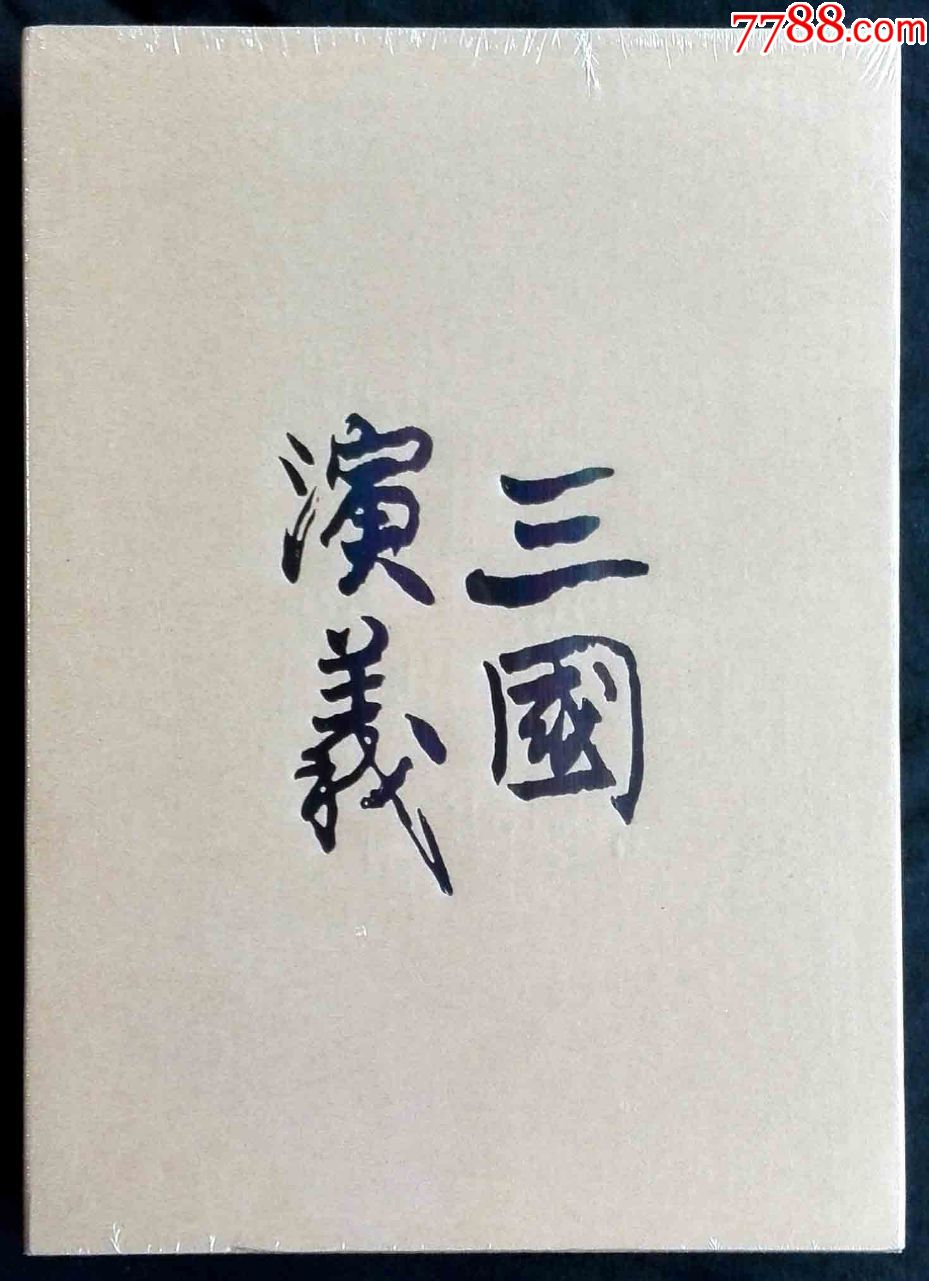 7788.com
三國
演義